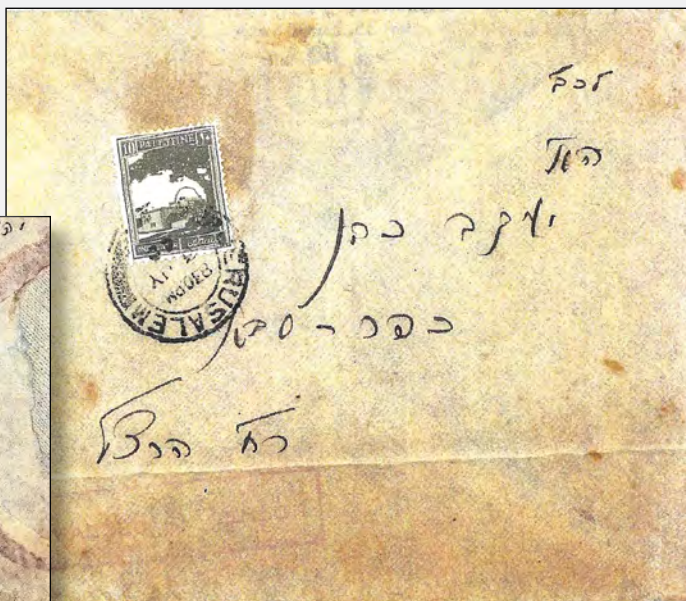 לכב'
יעקב כהן
כפר-סבא
רח' הרצל
10 PALESTINE ١٠
JERUSALEM
830PM